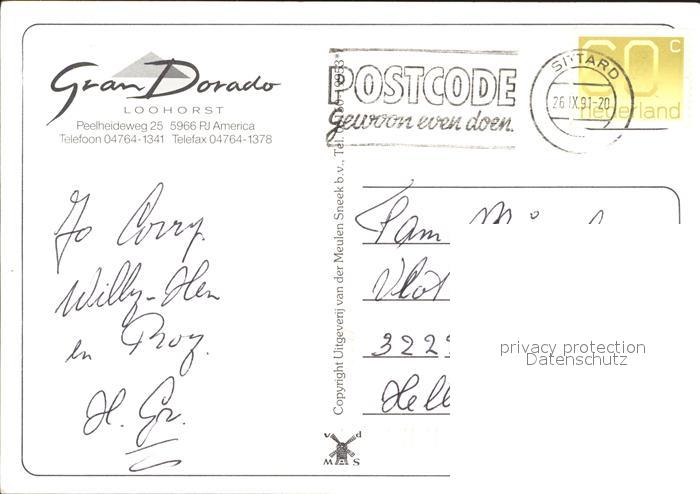 Gran Dorado
LOOHORST
Peelheideweg 25 5966 PJ America
Telefoon 04764-1341 Telefax 04764-1378
POSTCODE
gewoon even doen.
SITTARD
26 IX 91-20
60 c
nederland
Copyright Uitgeverij van der Meulen Sneek b.v., Tel.
Jo Corry.
Willy-Hen
en Roy.
H. Gr.
Fam
Vlot
322
Hell
privacy protection
Datenschutz
v d
MAS